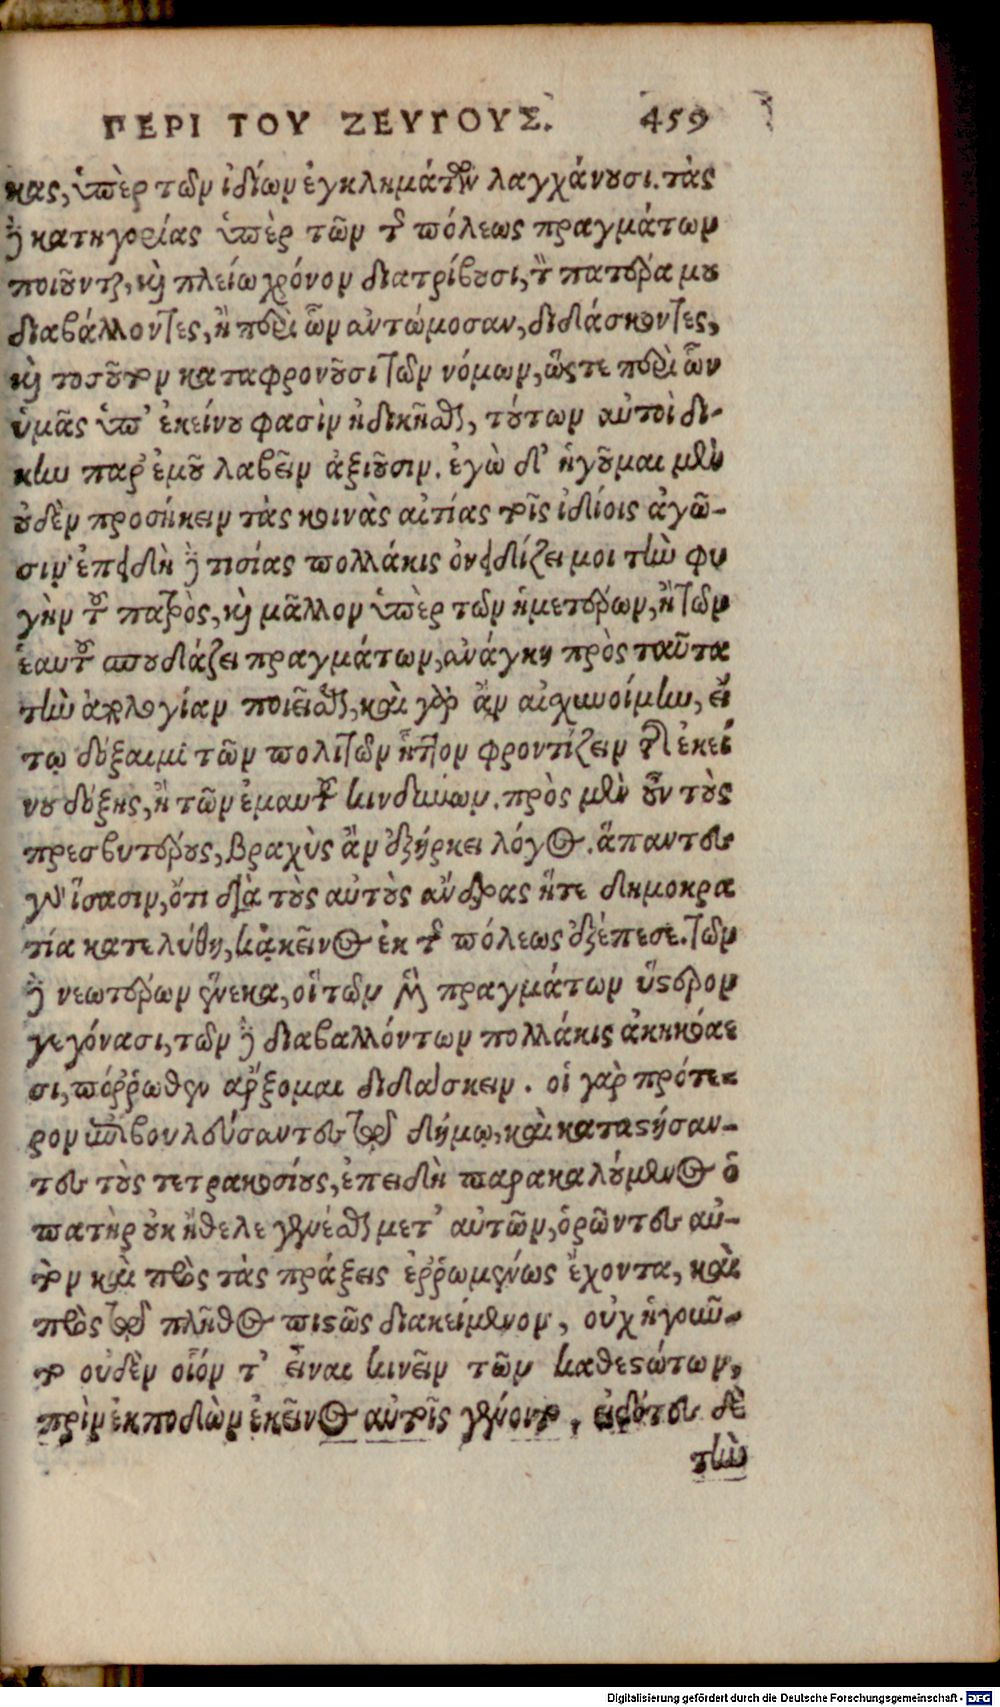 ΠΕΡΙ ΤΟΥ ΖΕΥΓΟΥΣ. 459
κας, ὑπὲρ τῶν ἰδίων ἐγκλημάτων λαγχάνουσι. τὰς
δὲ κατηγορίας ὑπὲρ τῶν τῆς πόλεως πραγμάτων
ποιοῦνται, καὶ πλείω χρόνον διατρίβουσι, τὸν πατέρα μου
διαβάλλοντες, ἢ περὶ ὧν ἀντώμοσαν, διδάσκοντες,
καὶ τοσοῦτον καταφρονοῦσι τῶν νόμων, ὥςτε περὶ ὧν
ὑμᾶς ὑπ' ἐκείνου φασὶν ἠδικῆσθαι, τούτων αὐτοὶ δί-
κην παρ' ἐμοῦ λαβεῖν ἀξιοῦσιν. ἐγὼ δ' ἡγοῦμαι μὲν
οὐδὲν προσήκειν τὰς κοινὰς αἰτίας τοῖς ἰδίοις ἀγῶ-
σιν· ἐπειδὴ δὲ τισίας πολλάκις ὀνειδίζει μοι τὴν φυ
γὴν τοῦ πατρὸς, καὶ μᾶλλον ὑπὲρ τῶν ἡμετέρων, ἢ τῶν
ἑαυτοῦ σπουδάζει πραγμάτων, ἀνάγκη πρὸς ταῦτα
τὴν ἀπολογίαν ποιεῖσθαι, καὶ γὰρ ἂν αἰσχυνοίμην, εἴ
τῳ δόξαιμι τῶν πολιτῶν ἧττον φροντίζειν τῆς ἐκεί
νου δόξης, ἢ τῶν ἐμαυτοῦ κινδύνων. πρὸς μὲν οὖν τοὺς
πρεσβυτέρους, βραχὺς ἂν ἐξήρκει λόγος. ἅπαντες
γὰρ ἴσασιν, ὅτι διὰ τοὺς αὐτοὺς ἄνδρας ἥτε δημοκρα
τία κατελύθη, κἀκεῖνος ἐκ τῆς πόλεως ἐξέπεσε. τῶν
δὲ νεωτέρων ἕνεκα, οἳ τῶν μὲν πραγμάτων ὕστερον
γεγόνασι, τῶν δὲ διαβαλλόντων πολλάκις ἀκηκόα
σι, πόῤῥωθεν ἄρξομαι διδάσκειν. οἱ γὰρ πρότε-
ρον ἐπιβουλεύσαντες τῷ δήμῳ, καὶ καταστήσαν-
τες τοὺς τετρακοσίους, ἐπειδὴ παρακαλούμενος ὁ
πατὴρ οὐκ ἤθελε γενέσθαι μετ' αὐτῶν, ὁρῶντες αὐ-
τὸν καὶ πρὸς τὰς πράξεις ἐῤῥωμένως ἔχοντα, καὶ
πρὸς τὸ πλῆθος πιστῶς διακείμενον, οὐχ ἡγοῦν-
το οὐδὲν οἷόν τ' εἶναι κινεῖν τῶν καθεστώτων,
πρὶν ἐκποδὼν ἐκεῖνος αὐτοῖς γένοιτο, εἰδότες δὲ
τὴν
Digitalisierung gefördert durch die Deutsche Forschungsgemeinschaft - DFG